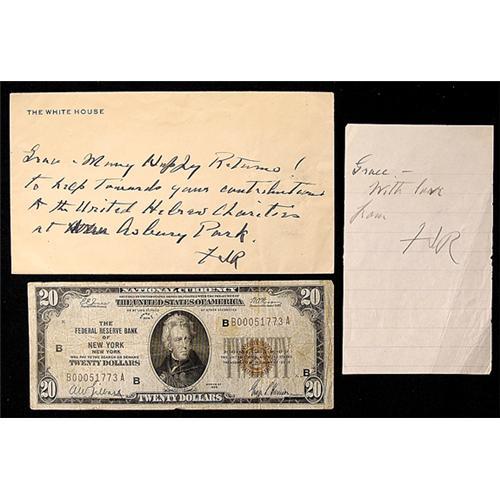 THE WHITE HOUSE
Grace - Many Happy Returns!
To help towards your contributions
to the United Hebrew Charities
at Asbury Park.
FDR
Grace -
With love
from
FDR
20
NATIONAL CURRENCY
20
THE UNITED STATES OF AMERICA
THE
FEDERAL RESERVE BANK
OF
NEW YORK
NEW YORK
WILL PAY TO THE BEARER ON DEMAND
TWENTY DOLLARS
B B00051773 A
B
B00051773 A
B
B
20
TWENTY DOLLARS
20